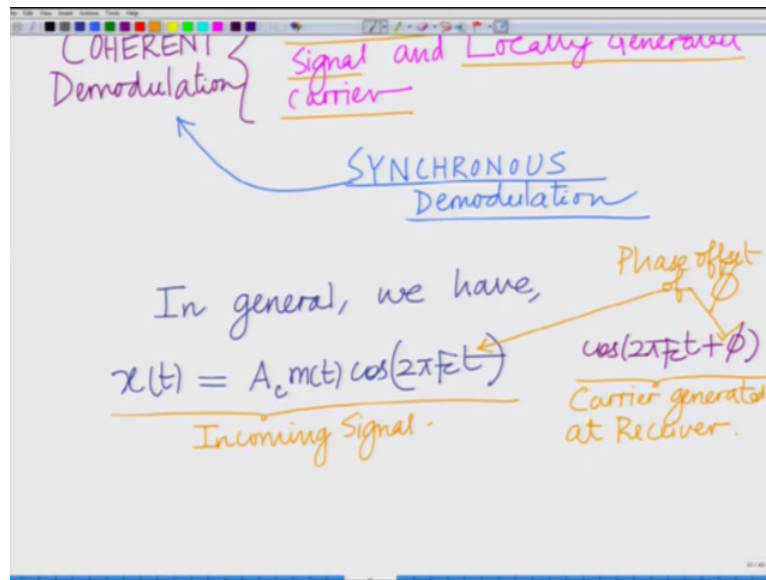 COHERENT
Demodulation
Signal and Locally Generated
Carrier
SYNCHRONOUS
Demodulation
Phase offset
of ϕ
In general, we have,
x(t) = A_c m(t) cos(2πf_c t)
cos(2πf_c t + ϕ)
Incoming Signal.
Carrier generated
at Receiver.